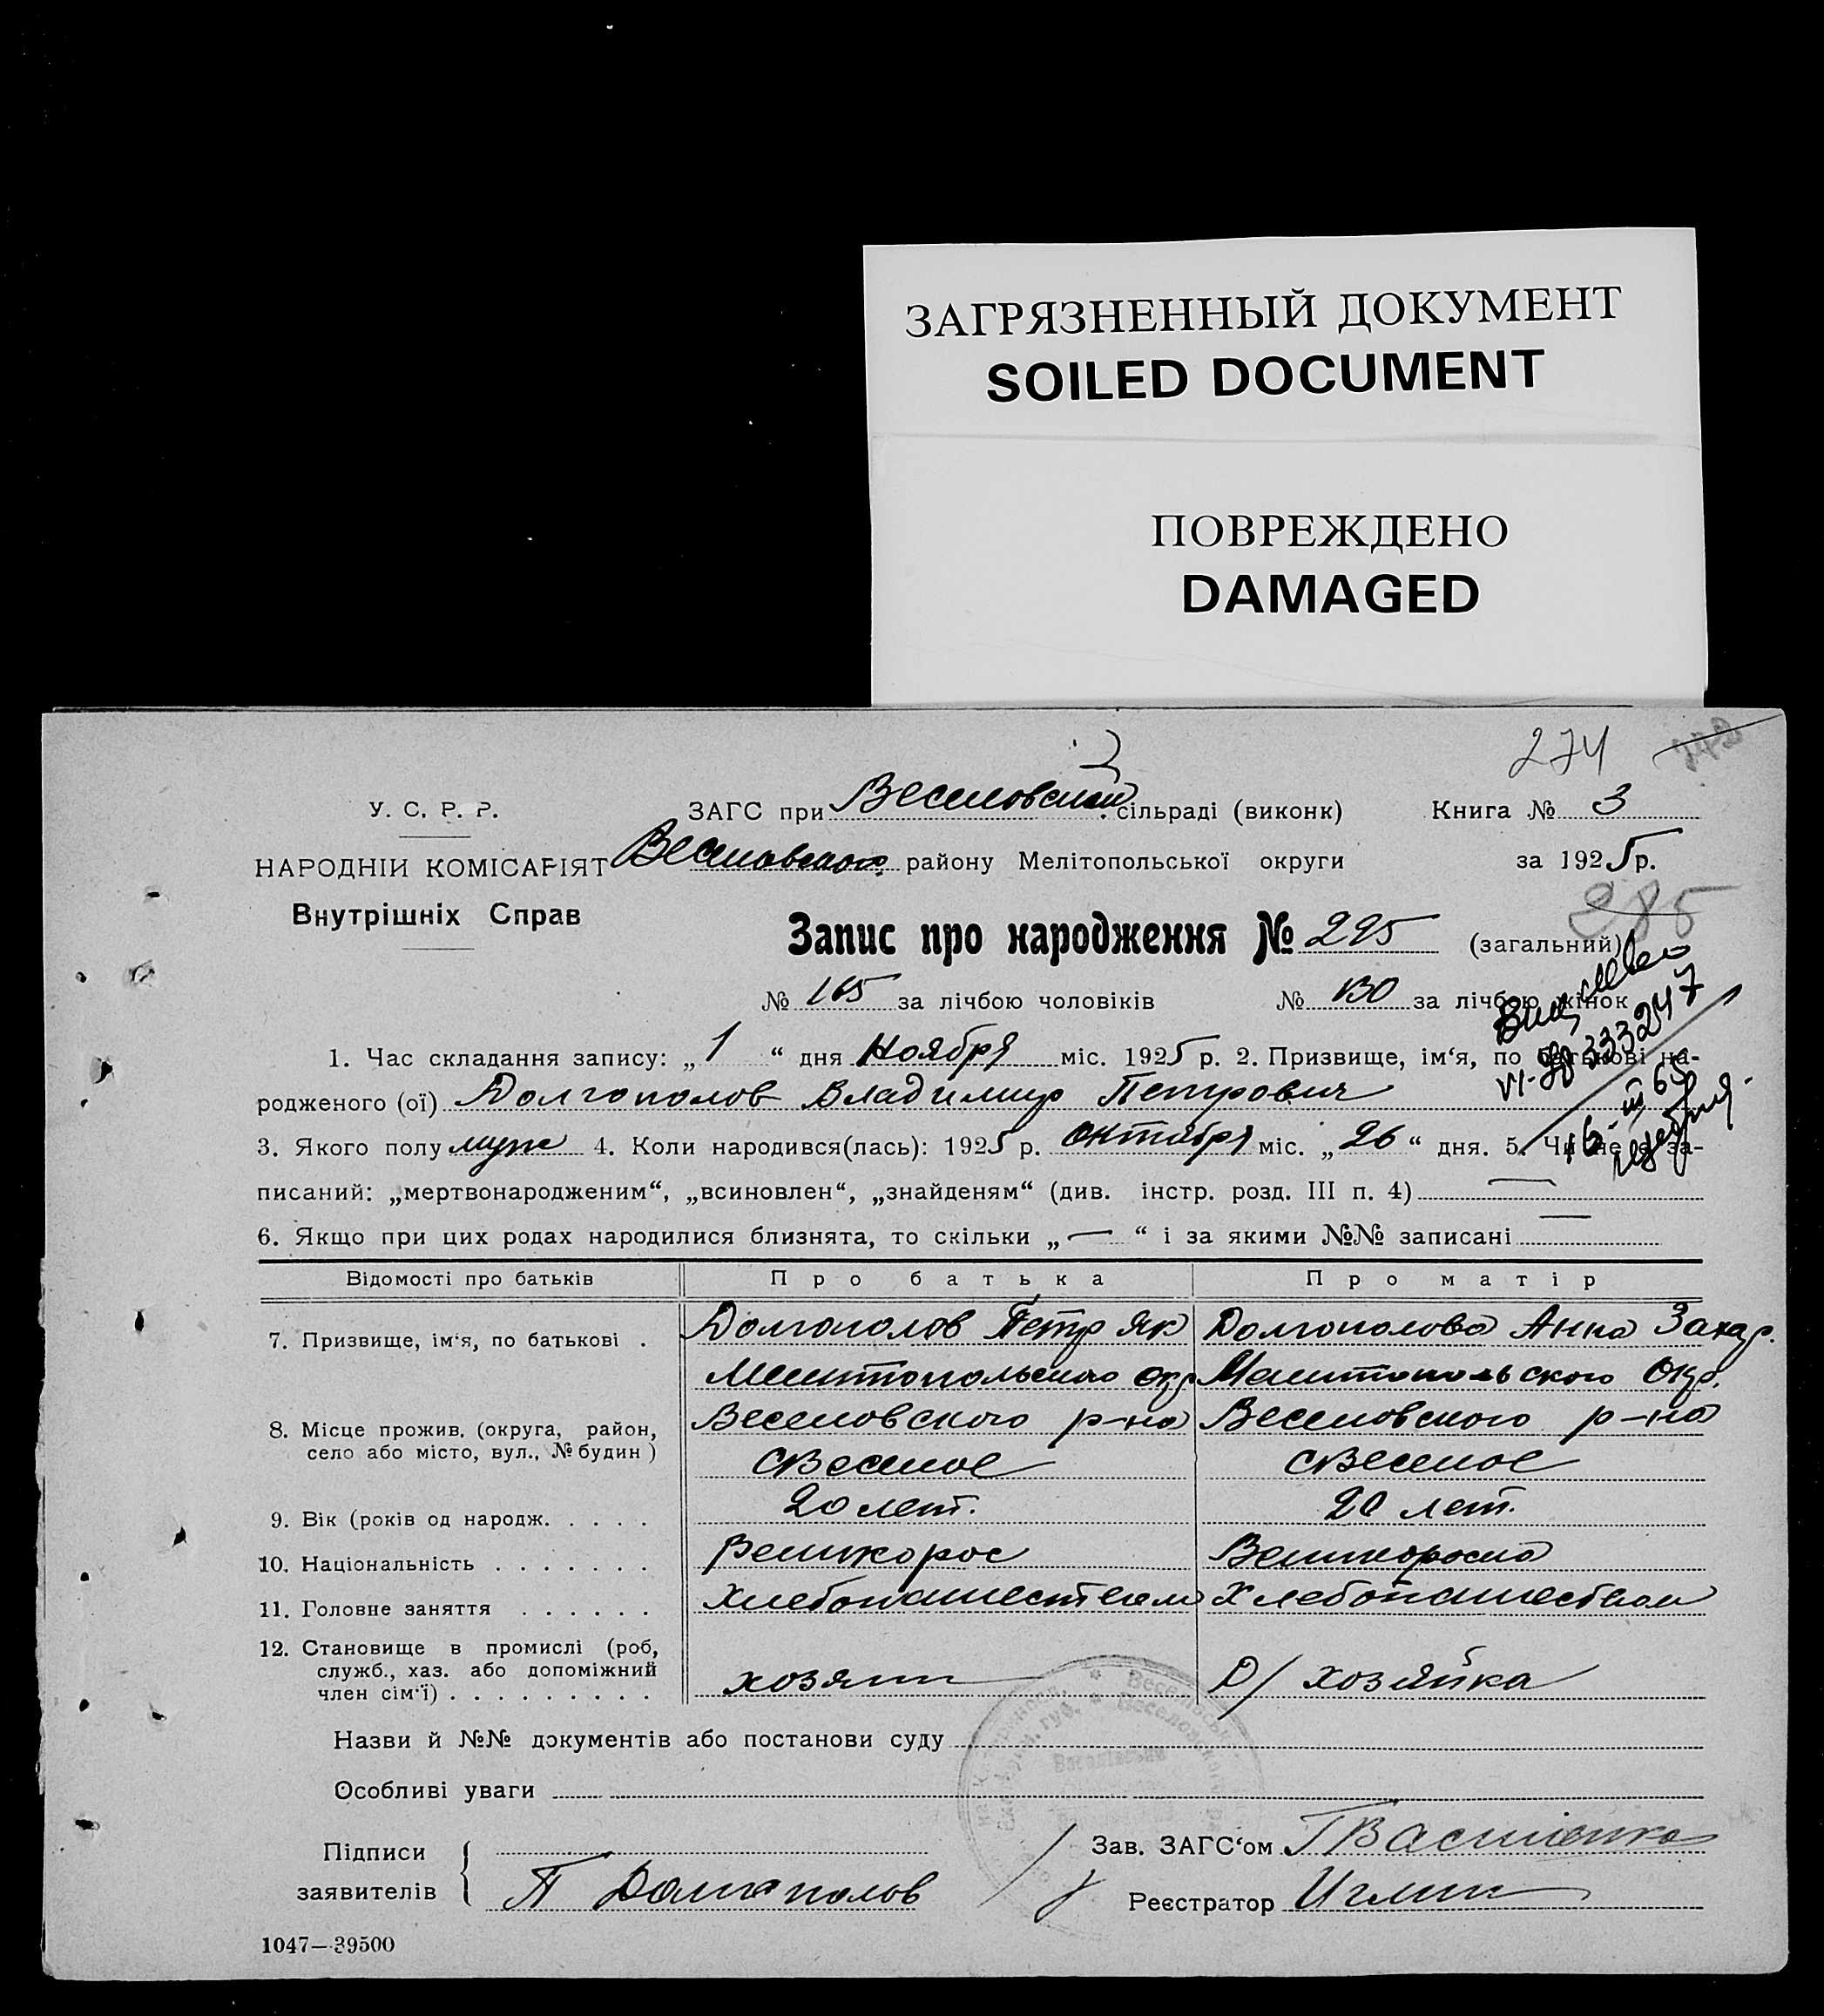 ЗАГРЯЗНЕННЫЙ ДОКУМЕНТ
SOILED DOCUMENT
ПОВРЕЖДЕНО
DAMAGED
274
У. С. Р. Р. ЗАГС при Веселовском сільраді (виконк) Книга № 3
НАРОДНІЙ КОМІСАРІЯТ Веселовского району Мелітопольської округи за 1925 р.
385
Внутрішніх Справ
Запис про народження № 295 (загальний)
№ 165 за лічбою чоловіків № 130 за лічбою жінок
VI-ЯР 333247
1. Час складання запису: „1“ дня Ноября міс. 1925 р. 2. Призвище, ім‘я, по батькові на-
родженого (ої) Долгополов Владимир Петрович
3. Якого полу муж 4. Коли народився(лась): 1925 р. Октября міс. „26“ дня. 5. Чи не є за-
писаний: „мертвонародженим“, „всиновлен“, „знайденям“ (див. інстр. розд. III п. 4) —
6. Якщо при цих родах народилися близнята, то скільки „—“ і за якими №№ записані —
Відомості про батьків Про батька Про матір
7. Призвище, ім‘я, по батькові . Долгополов Петр Як Долгополова Анна Захар.
Мелитопольского Окр Мелитопольского Окр.
8. Місце прожив. (округа, район, Веселовского р-на Веселовского р-на
село або місто, вул., № будин) с Веселое с Веселое
9. Вік (років од народж. . . . . 20 лет. 20 лет.
10. Національність . . . . . . . Великорос Великороска
11. Головне заняття . . . . . . Хлебопашеством Хлебопашеством
12. Становище в промислі (роб,
служб., хаз. або допоміжний
член сім‘ї) . . . . . . . . . хозяин Д/ хозяйка
Назви й №№ документів або постанови суду
Особливі уваги
Підписи Зав. ЗАГС‘ом
заявителів П Долгополов Реєстратор
1047—39500